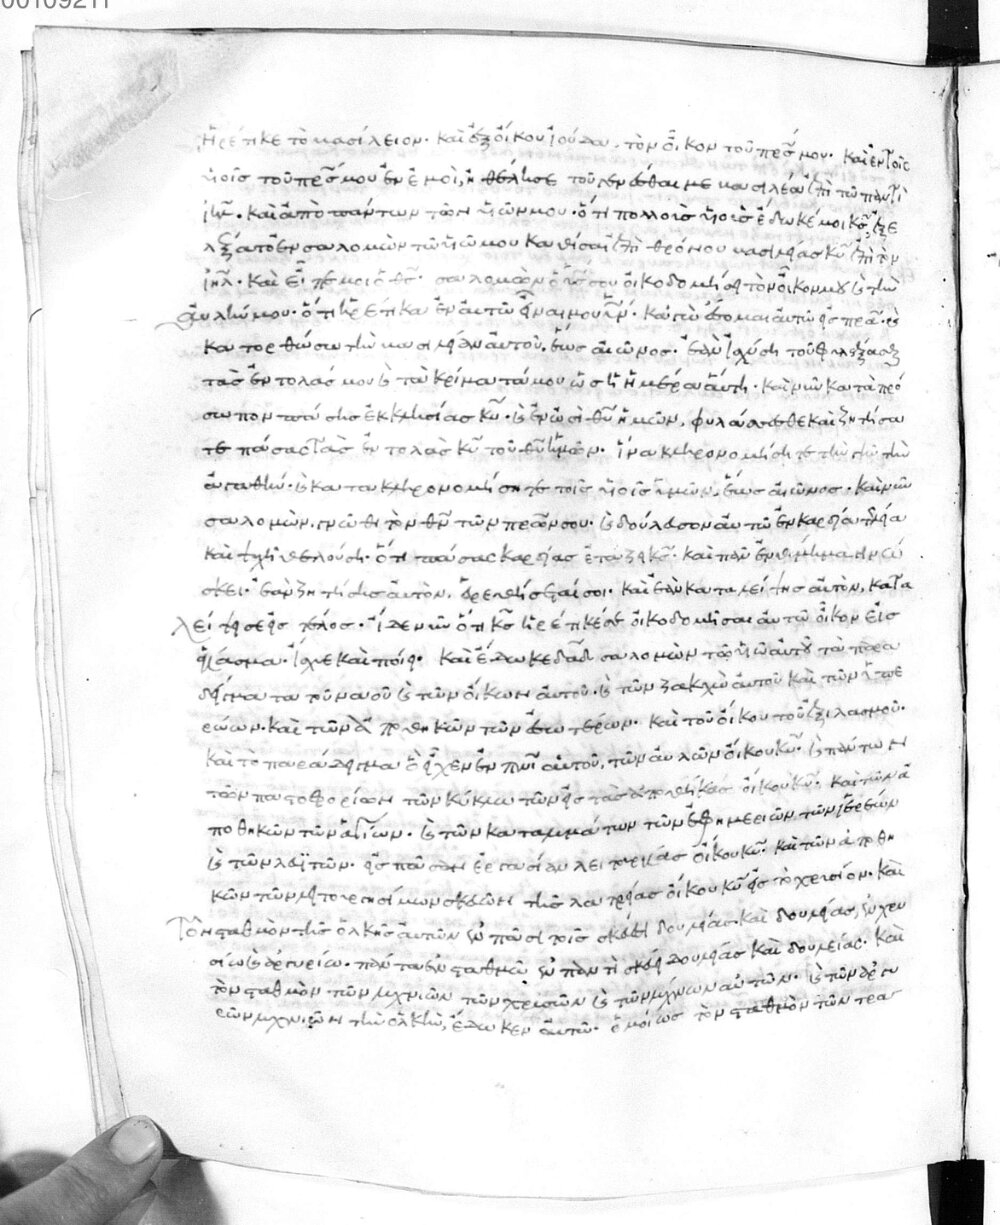 00109211
ᾑρέτικε τὸ βασίλειον· καὶ ἐξ οἴκου ἰούδα, τὸν οἶκον τοῦ πρς μου· καὶ ἐν τοῖς
υἱοῖς τοῦ πρς μου ἐν ἐμοὶ, ἠθέλησε τοῦ γενέσθαι με βασιλέα ἐπὶ τῶ παντὶ
ιηλ· καὶ ἀπὸ πάντων τῶν υἱῶν μου· ὅτι πολλοὺς υἱοὺς ἔδωκέ μοι κς, ἐξε
λέξατο ἐν σαλομὼν τῶ υἱῶ μου καθίσαι ἐπὶ θρόνου βασιλείας κυ ἐπὶ τὸν
ιηλ· καὶ εἶπέ μοι ὁ θς· σαλομὼν ὁ υἱός σου οἰκοδομήσει τὸν οἶκον μου καὶ τὴν
αὐλήν μου· ὅτι ᾑρέτικα ἐν αὐτῶ εἶναι μου υἱόν· κἀγὼ ἔσομαι αὐτῶ εἰς πρα· καὶ
κατορθώσω τὴν βασιλείαν αὐτοῦ, ἕως αἰῶνος· ἐὰν ἰσχύση τοῦ φυλάξασθαι
τὰς ἐντολάς μου καὶ τὰ κρίματά μου ὡς ἡ ἡμέρα αὕτη· καὶ νῦν κατὰ πρό
σωπον πάσης ἐκκλησίας κυ· καὶ ἐν ὠσὶ θυ ἡμῶν, φυλάσσεσθε καὶ ζητήσα
τε πάσας τὰς ἐντολὰς κυ τοῦ θυ ἡμῶν· ἵνα κληρονομήσητε τὴν γῆν τὴν
ἀγαθήν· καὶ κατακληρονομήσητε τοῖς υἱοῖς ὑμῶν, ἕως αἰῶνος· καὶ νῦν
σαλομὼν, γνῶθι τὸν θν τῶν πρων σου· καὶ δούλευσον αὐτῶ ἐν καρδία τελεία
καὶ ψυχῆ θελούση· ὅτι πάσας καρδίας ἐτάζει κς· καὶ πᾶν ἐνθύμημα γινώ
σκει· ἐὰν ζητήσης αὐτὸν, εὑρεθήσεταί σοι· καὶ ἐὰν καταλείψης αὐτὸν, κατα
λείψει σε εἰς τέλος· ἴδε νῦν ὅτι κς ᾑρέτικέ σε οἰκοδομῆσαι αὐτῶ οἶκον εἰς
ἁγίασμα· ἴσχυε καὶ ποίει· καὶ ἔδωκε δαδ σαλομὼν τῶ υἱῶ αὐτοῦ τὸ παρά
δειγμα τοῦ ναοῦ καὶ τῶν οἴκων αὐτοῦ· καὶ τῶν ζακχὼ αὐτοῦ καὶ τῶν ὑπε
ρώων· καὶ τῶν ἀποθηκῶν τῶν ἐσωτέρων· καὶ τοῦ οἴκου τοῦ ἐξιλασμοῦ·
καὶ τὸ παράδειγμα ὃ εἶχεν ἐν πνι αὐτοῦ, τῶν αὐλῶν οἴκου κυ· καὶ πάντων
τῶν παστοφορίων τῶν κύκλω τῶν εἰς τὰς ἀποθήκας οἴκου κυ· καὶ τῶν ἀ
ποθηκῶν τῶν ἁγίων· καὶ τῶν καταλυμάτων τῶν ἐφημεριῶν τῶν ἱερέων
καὶ τῶν λευϊτῶν· εἰς πᾶσαν ἐργασίαν λειτουργίας οἴκου κυ· καὶ τῶν ἀποθη
κῶν τῶν λειτουργησίμων σκευῶν τῆς λατρείας οἴκου κυ εἰς τὸ χρυσίον· καὶ
τὸν σταθμὸν τῆς ὁλκῆς αὐτῶν ἐν πᾶσι τοῖς σκεύεσι δουλείας καὶ δουλείας, ἐν χρυ
σίω καὶ ἀργυρίω· πάντα ἐν σταθμῶ ἐν παντὶ σκεύει δουλείας καὶ δουλείας· καὶ
τὸν σταθμὸν τῶν λυχνιῶν τῶν χρυσῶν καὶ τῶν λύχνων αὐτῶν· καὶ τῶν ἀργυ
ρῶν λυχνιῶν τὴν ὁλκὴν, ἔδωκεν αὐτῶ· ὁμοίως τὸν σταθμὸν τῶν τρα